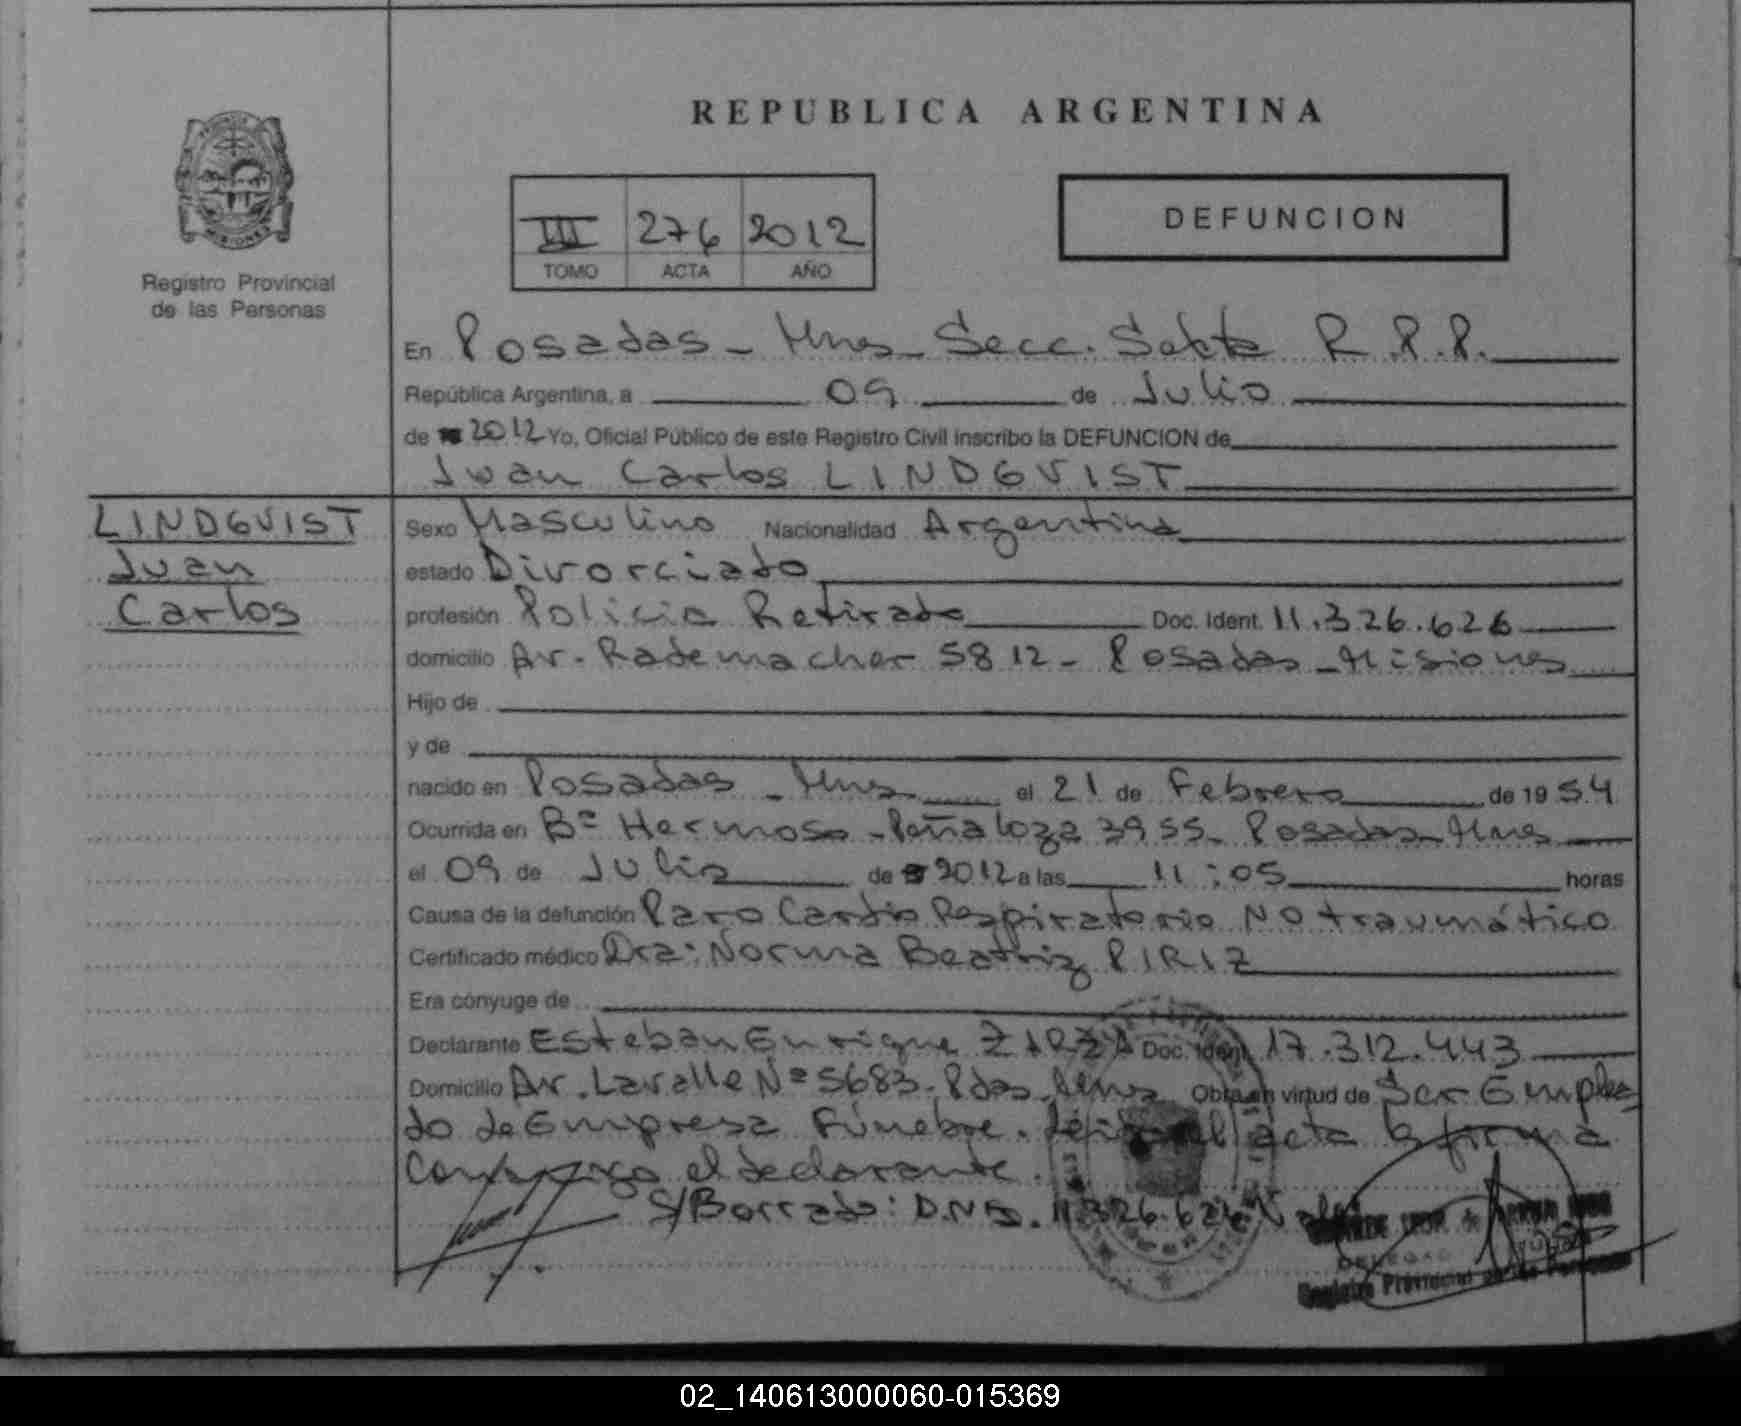 REPUBLICA ARGENTINA
PROVINCIA
MISIONES
Registro Provincial
de las Personas
III 276 2012
TOMO ACTA AÑO
DEFUNCION
En Posadas - Mnes - Secc. Sexta R.P.P.
República Argentina, a 09 de Julio
de 2012 Yo, Oficial Público de este Registro Civil inscribo la DEFUNCION de
Juan Carlos LINDGVIST
LINDGVIST
Juan
Carlos
Sexo Masculino Nacionalidad Argentina
estado Divorciado
profesión Policia Retirado Doc. Ident. 11.326.626
domicilio Av. Rademacher 5812 - Posadas - Misiones
Hijo de
y de
nacido en Posadas - Mnes el 21 de Febrero de 1954
Ocurrida en Bº Hermoso - Peñaloza 3955 - Posadas - Mnes
el 09 de Julio de 2012 a las 11:05 horas
Causa de la defunción Paro Cardio Respiratorio No traumático
Certificado médico Dra: Norma Beatriz PIRIZ
Era cónyuge de
Declarante Esteban Enrique Doc. Ident. 17.312.443
Domicilio Av. Lavalle Nº 5683 - Pdas - Mnes Obra en virtud de Ser Emplea
do de Empresa Fúnebre. acta la firma
Conmigo el declarante.
S/Borrado: D.N.I. 11.326.626 Vale
Registro Provincial de las Personas
02_140613000060-015369